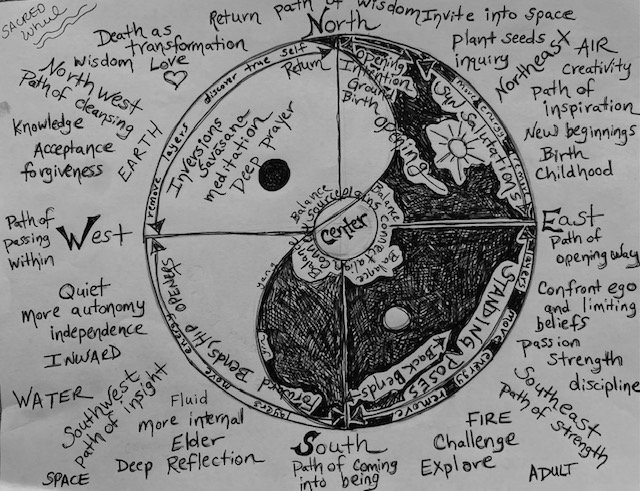 SACRED
Wheel
Return path of wisdom
North
Invite into space
Death as
transformation
wisdom Love
Plant seeds
inquiry
Northeast
AIR
Creativity
Path of
inspiration
New beginnings
Birth
Childhood
North West
Path of cleansing
Knowledge
Acceptance
forgiveness
EARTH
remove layers discover true self
Return
Opening
Intention
Ground
Birth
Opening
Sun Salutations
more energy remove
Inversions
Savasana
meditation
Deep Prayer
Path of
passing
within
West
Balance
Center
Balance
connect
Balance
East
Path of
opening way
layers more energy remove
STANDING POSES
Back Bends
Confront ego
and limiting
beliefs
Passion
Strength
discipline
Southeast
Path of strength
Quiet
More autonomy
independence
INWARD
Forward Bends, Hip OPENERS
layers more energy
WATER
Southwest
path of insight
Fluid
more internal
Elder
Deep Reflection
SPACE
South
Path of coming
into being
FIRE
Challenge
Explore
ADULT